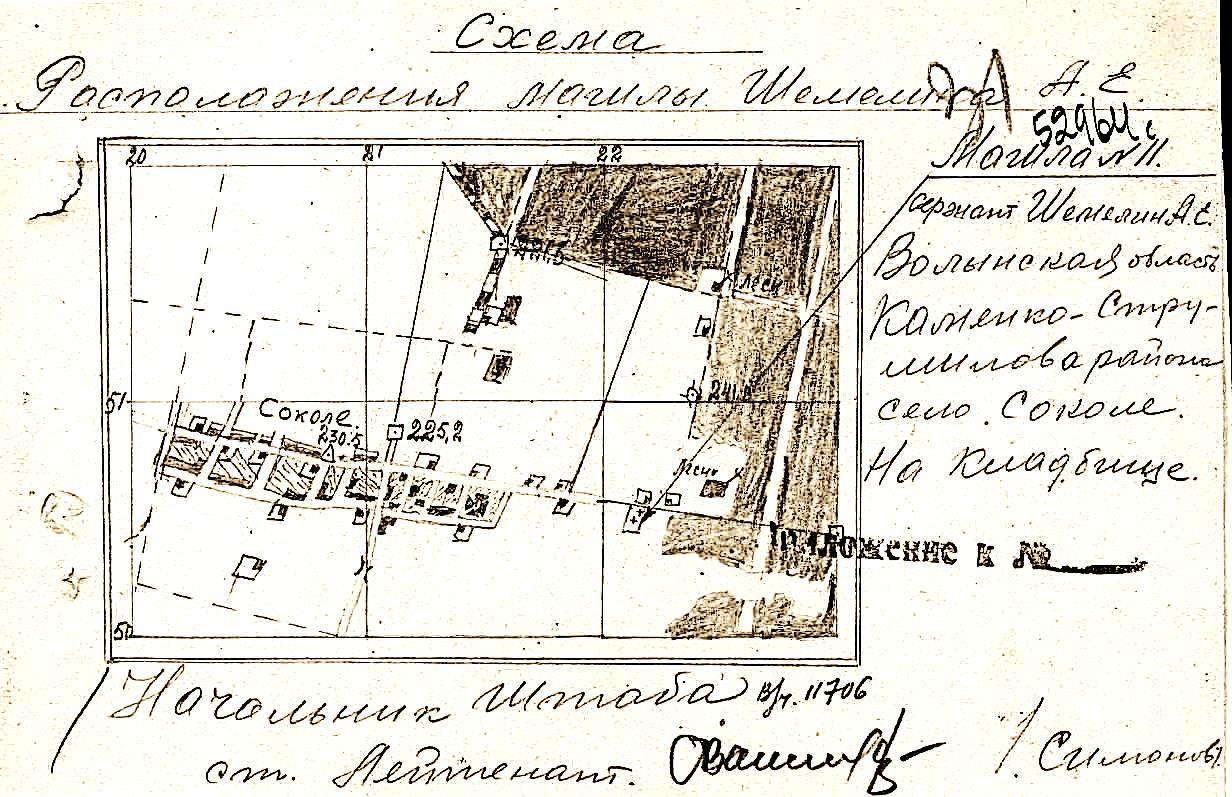 Схема
Расположения магилы Шемелина А. Е.
52964с
Магила №11.
Сержант Шемелин А.Е.
Волынская область
Каменко-Стру-
милова района
село Соколе.
На кладбище.
20 21 22
лесн
51
241,8
Соколе
230.5
225,2
лесн.
Приложение к №
50
Начальник Штаба в/ч. 11706
ст. Лейтенант.
/Симонов/